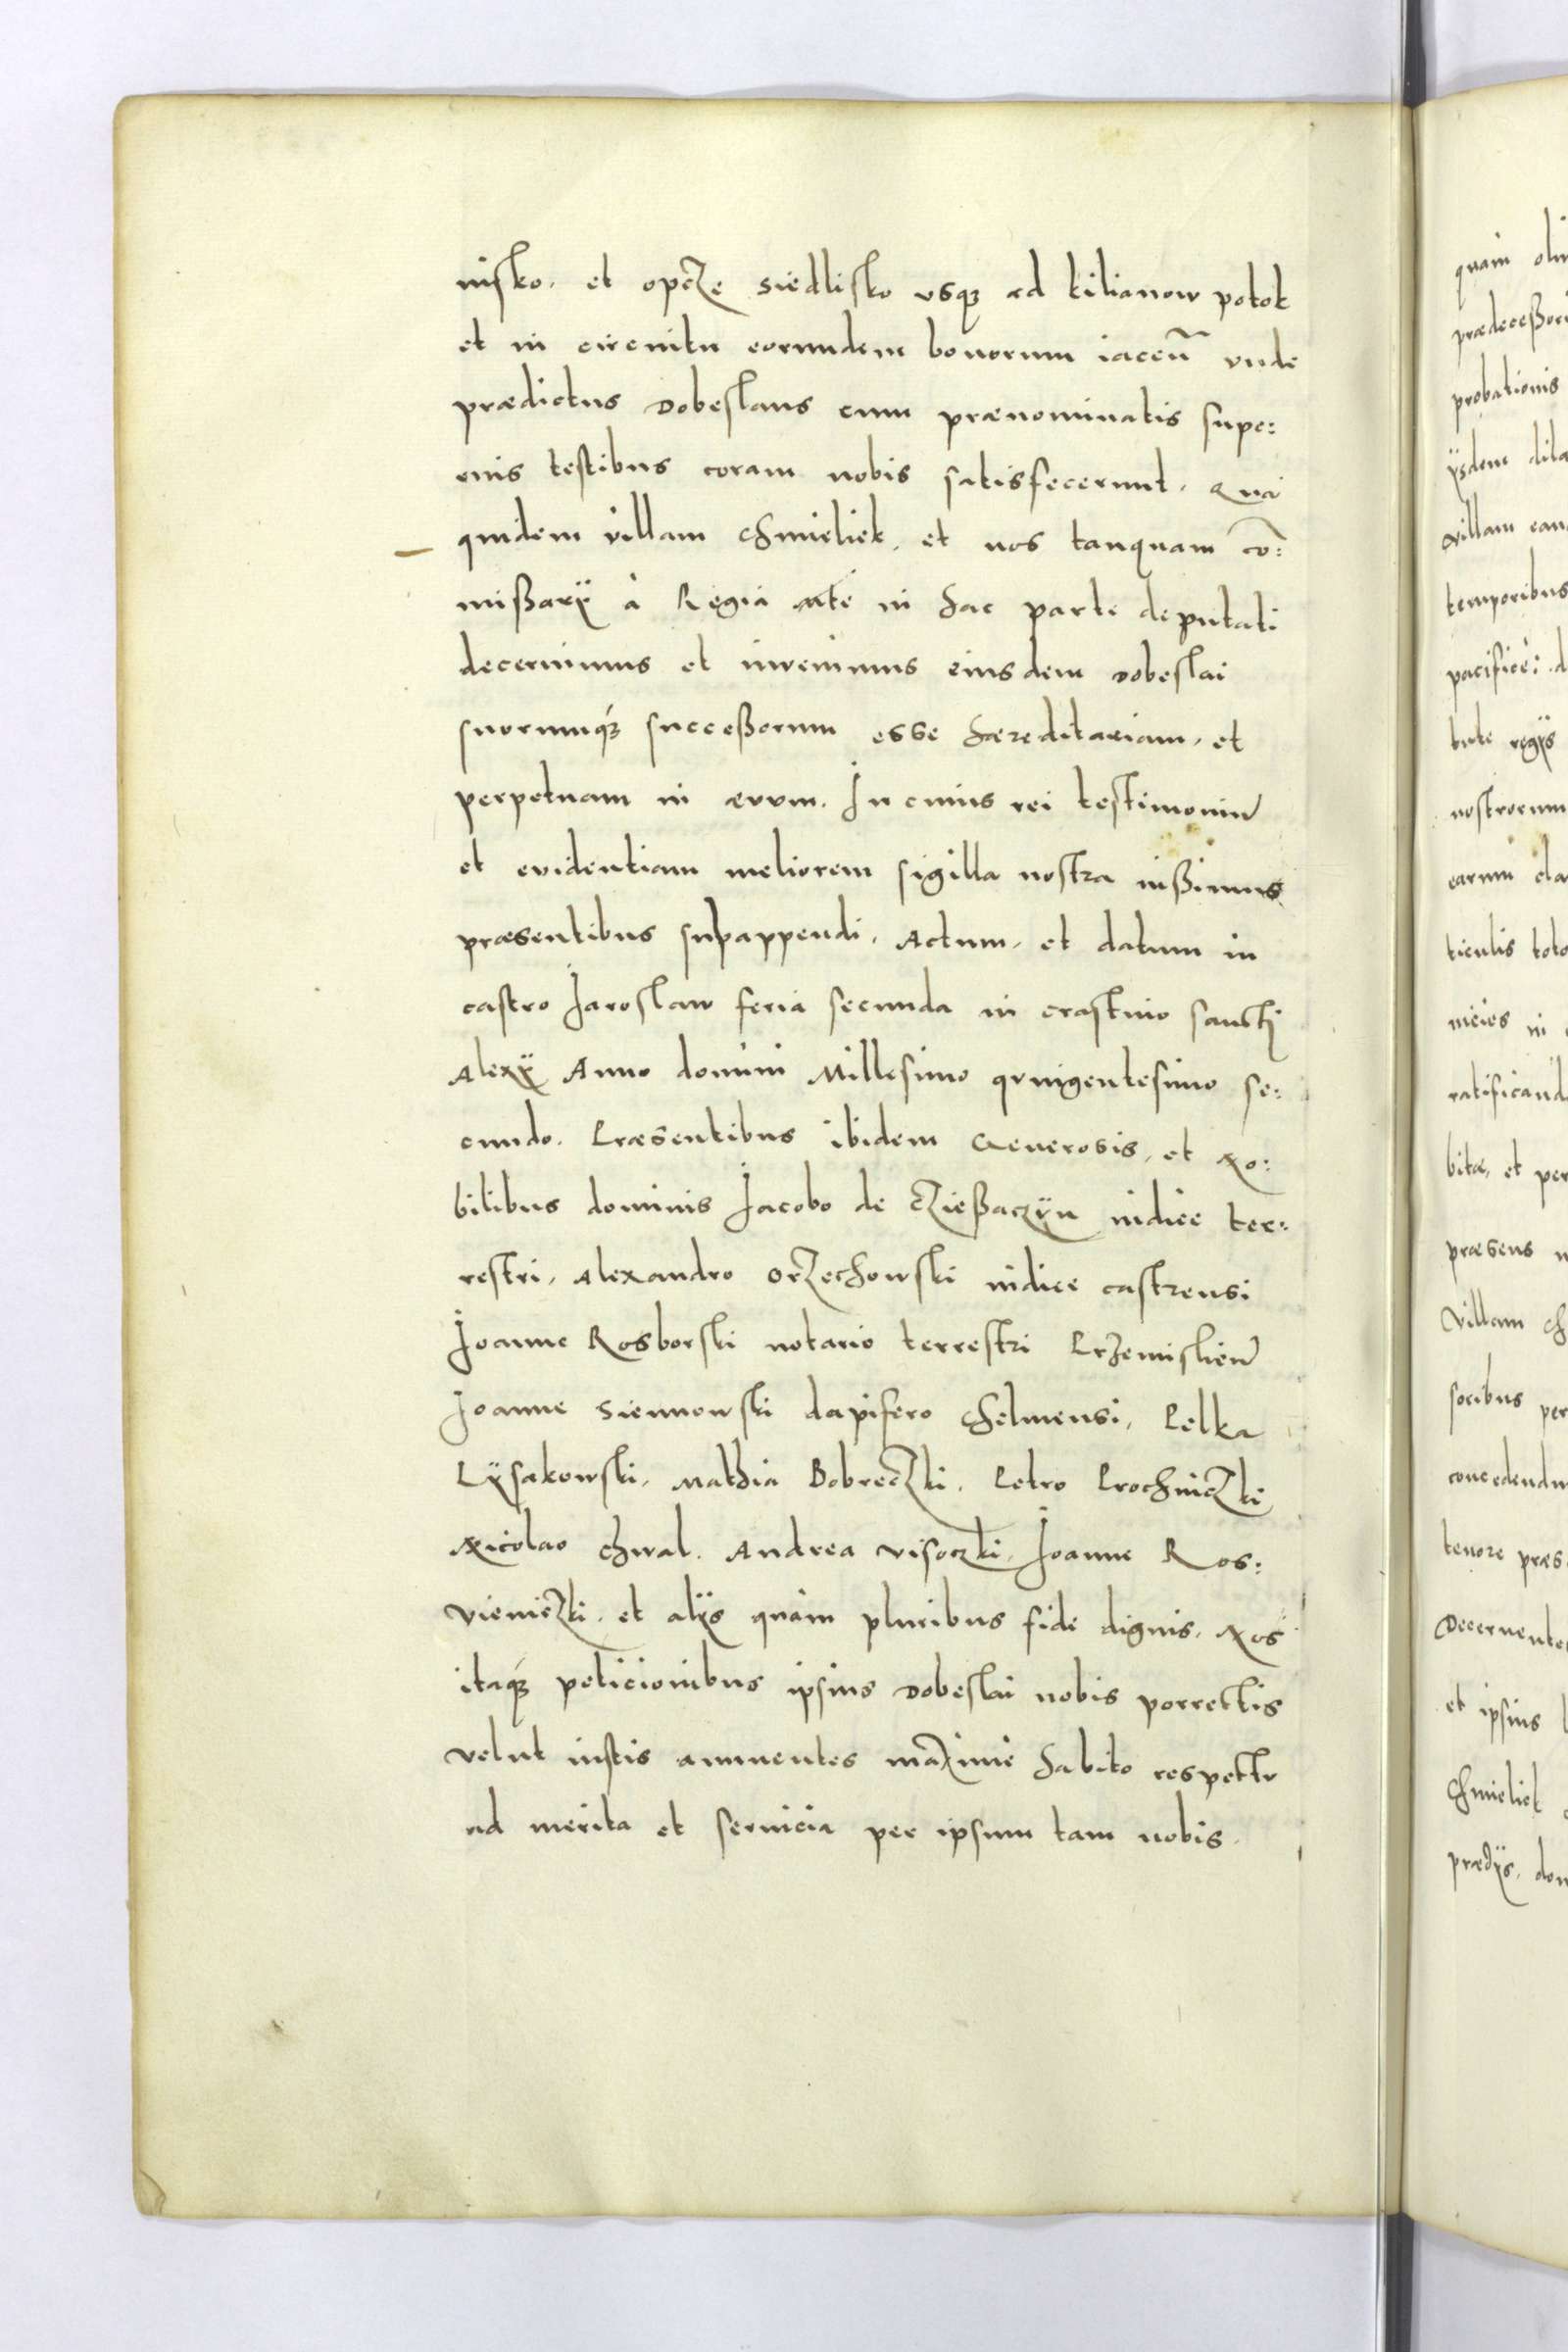 nisko. et opcze siedlisko vsq3 ad kilianow potok
et in circuitu eorundem bonorum iaceñ vnde
prædictus Dobeslaus cum prænominatis supe:
quidem villam Chmieliek, et nos tanquam cō:
mißarij à Regia Mte in hac parte deputati
decernimus et invenimus eiusdem Dobeslai
suorumq3 succeßorum esse hæreditariam, et
perpetuam in ævvm. In cuius rei testimoniū
et evidentiam meliorem sigilla nostra iußimus
præsentibus subappendi. Actum, et datum in
castro Jaroslaw feria secunda in crastino sancti
Alexij Anno domini Millesimo qvingentesimo se:
cundo. Præsentibus ibidem Generosis, et No:
bilibus dominis Jacobo de Czießaczyn iudice ter:
restri, Alexandro Orzechowski iudice castrensi
Joanne Rosborski notario terrestri Przemislień
Joanne Siennowski dapifero Chelmensi, Pelka
Lÿsakowski, Mathia Bobreczki. Petro Prochniczki
Nicolao Chwal. Andrea Visoczki, Joanne Ros:
vieniczki, et alijs quàm pluribus fide dignis. Nos
itaq3 peticionibus ipsius Dobeslai nobis porrectis
velut iustis annuentes maxime habito respectv
ad merita et seruicia per ipsum tam nobis.
quam
prædeceßor
probationis
ijsdem
villam
temporibus
pacifice:
regijs
nostrorum
earum
ticulis
ratificand
bitæ, et per
præsens
Villam
soribus per
concedendum
tenore præs
Decernentes
et ipsius
Chmieliek
prædijs,